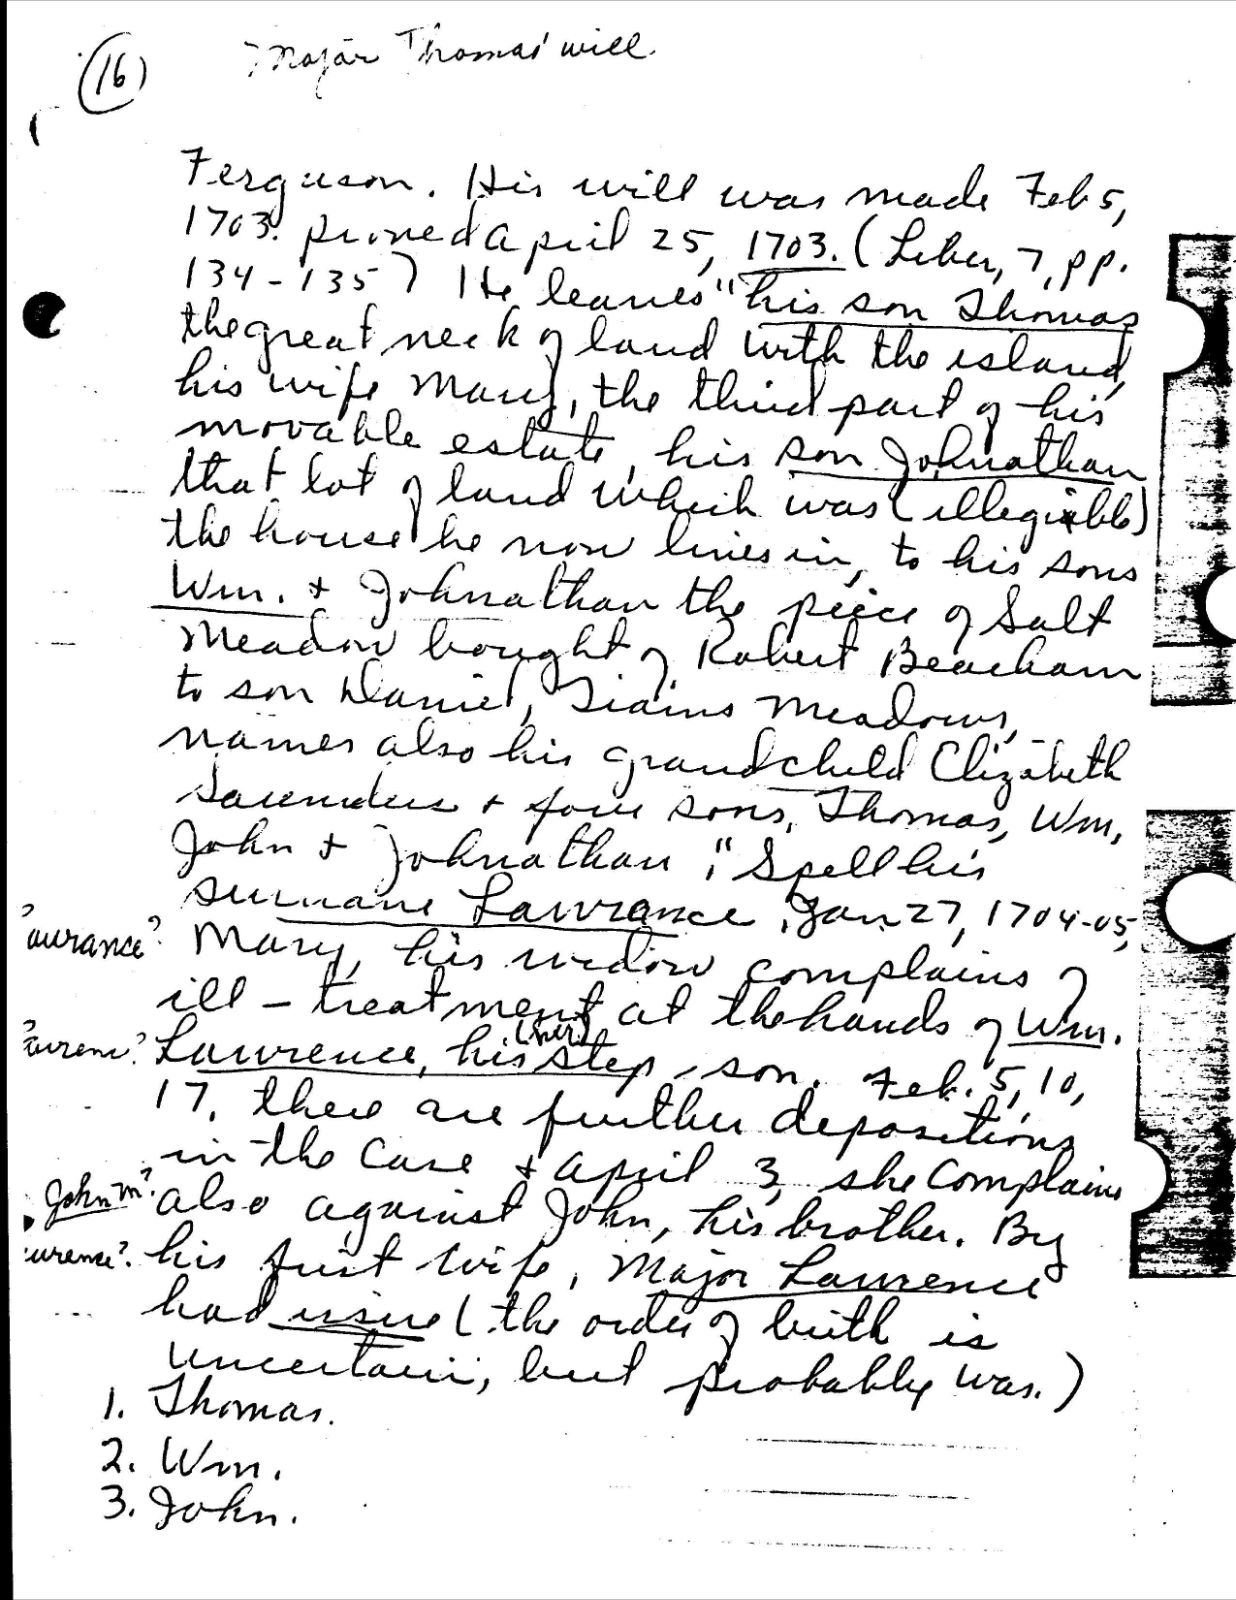 (16) Major Thomas' will.
Ferguson. His will was made Feb 5,
1703. proved April 25, 1703. (Liber, 7, pp.
134-135) He leaves "his son Thomas
the great neck of land with the island,
his wife Mary, the third part of his
movable estate, his son Johnathan
that lot of land which was (illegible)
the house he now lives in, to his sons
Wm. & Johnathan the piece of Salt
Meadow bought of Robert Beacham
to son Daniel, Meadows,
names also his grandchild Elizabeth
Saunders & four sons, Thomas, Wm,
John & Johnathan," Spell his
surname Lawrance. Jan 27, 1704-05,
aurance? Mary, his widow complains of
ill-treatment at the hands of Wm.
(her)
Lawrence, his step-son. Feb. 5, 10,
17, there are further depositions
in the case & April 3, she complains
John m? also against John, his brother. By
urence? his first wife, Major Lawrence
had issue (the order of birth is
uncertain, but probably was.)
1. Thomas.
2. Wm.
3. John.